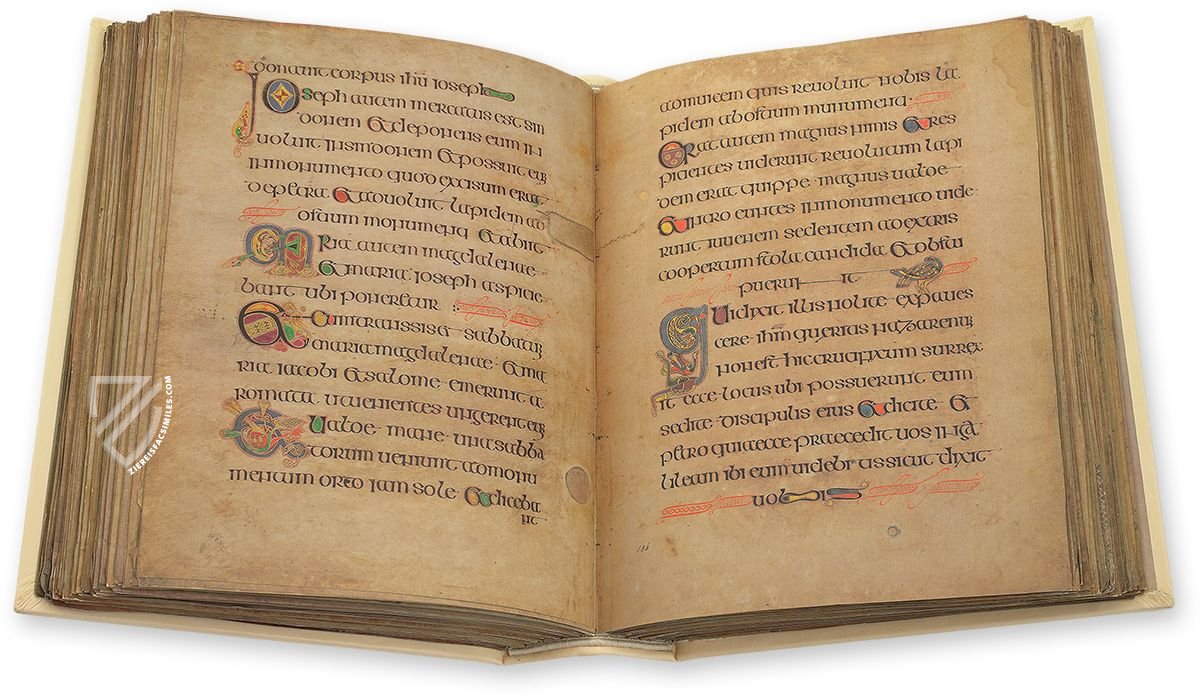 donauit corpus ihu ioseph
Ioseph autem mercatus est sin
donem et deponens eum in
uoluit in sindonem et possuit eum
in monumento quod excisum erat
de petra et aduoluit lapidem ad
ostium monumenti et abiit
maria autem magdalenae
et maria ioseph aspicie
bant ubi poneretur
Et cum transisset sabbatum
maria magdalenae et ma
ria iacobi et salome emerunt a
romata ut uenientes ungerent eum
Et ualde mane una sabba
torum ueniunt ad monu
mentum orto iam sole et diceba
nt
adinuicem quis reuoluit nobis la
pidem ab ostium monumenti
Erat autem magnus nimis et res
picientes uiderunt reuolutum lapi
dem erat quippe magnus ualde
Et intro euntes in monumento uide
runt iuuenem sedentem a dextris
coopertum stola candida et obstu
puerunt
Qui dixit illis nolite expaues
cere ihm queritis nazarenum
non est hic crucifixum surrex
it ecce locus ubi possuerunt eum
sed ite discipulis eius et dicite et
petro quia ecce praecedit uos in ga
lileam ibi eum uidebitis sicut dixit
uobis
186
ZIEREISFACSIMILES.COM